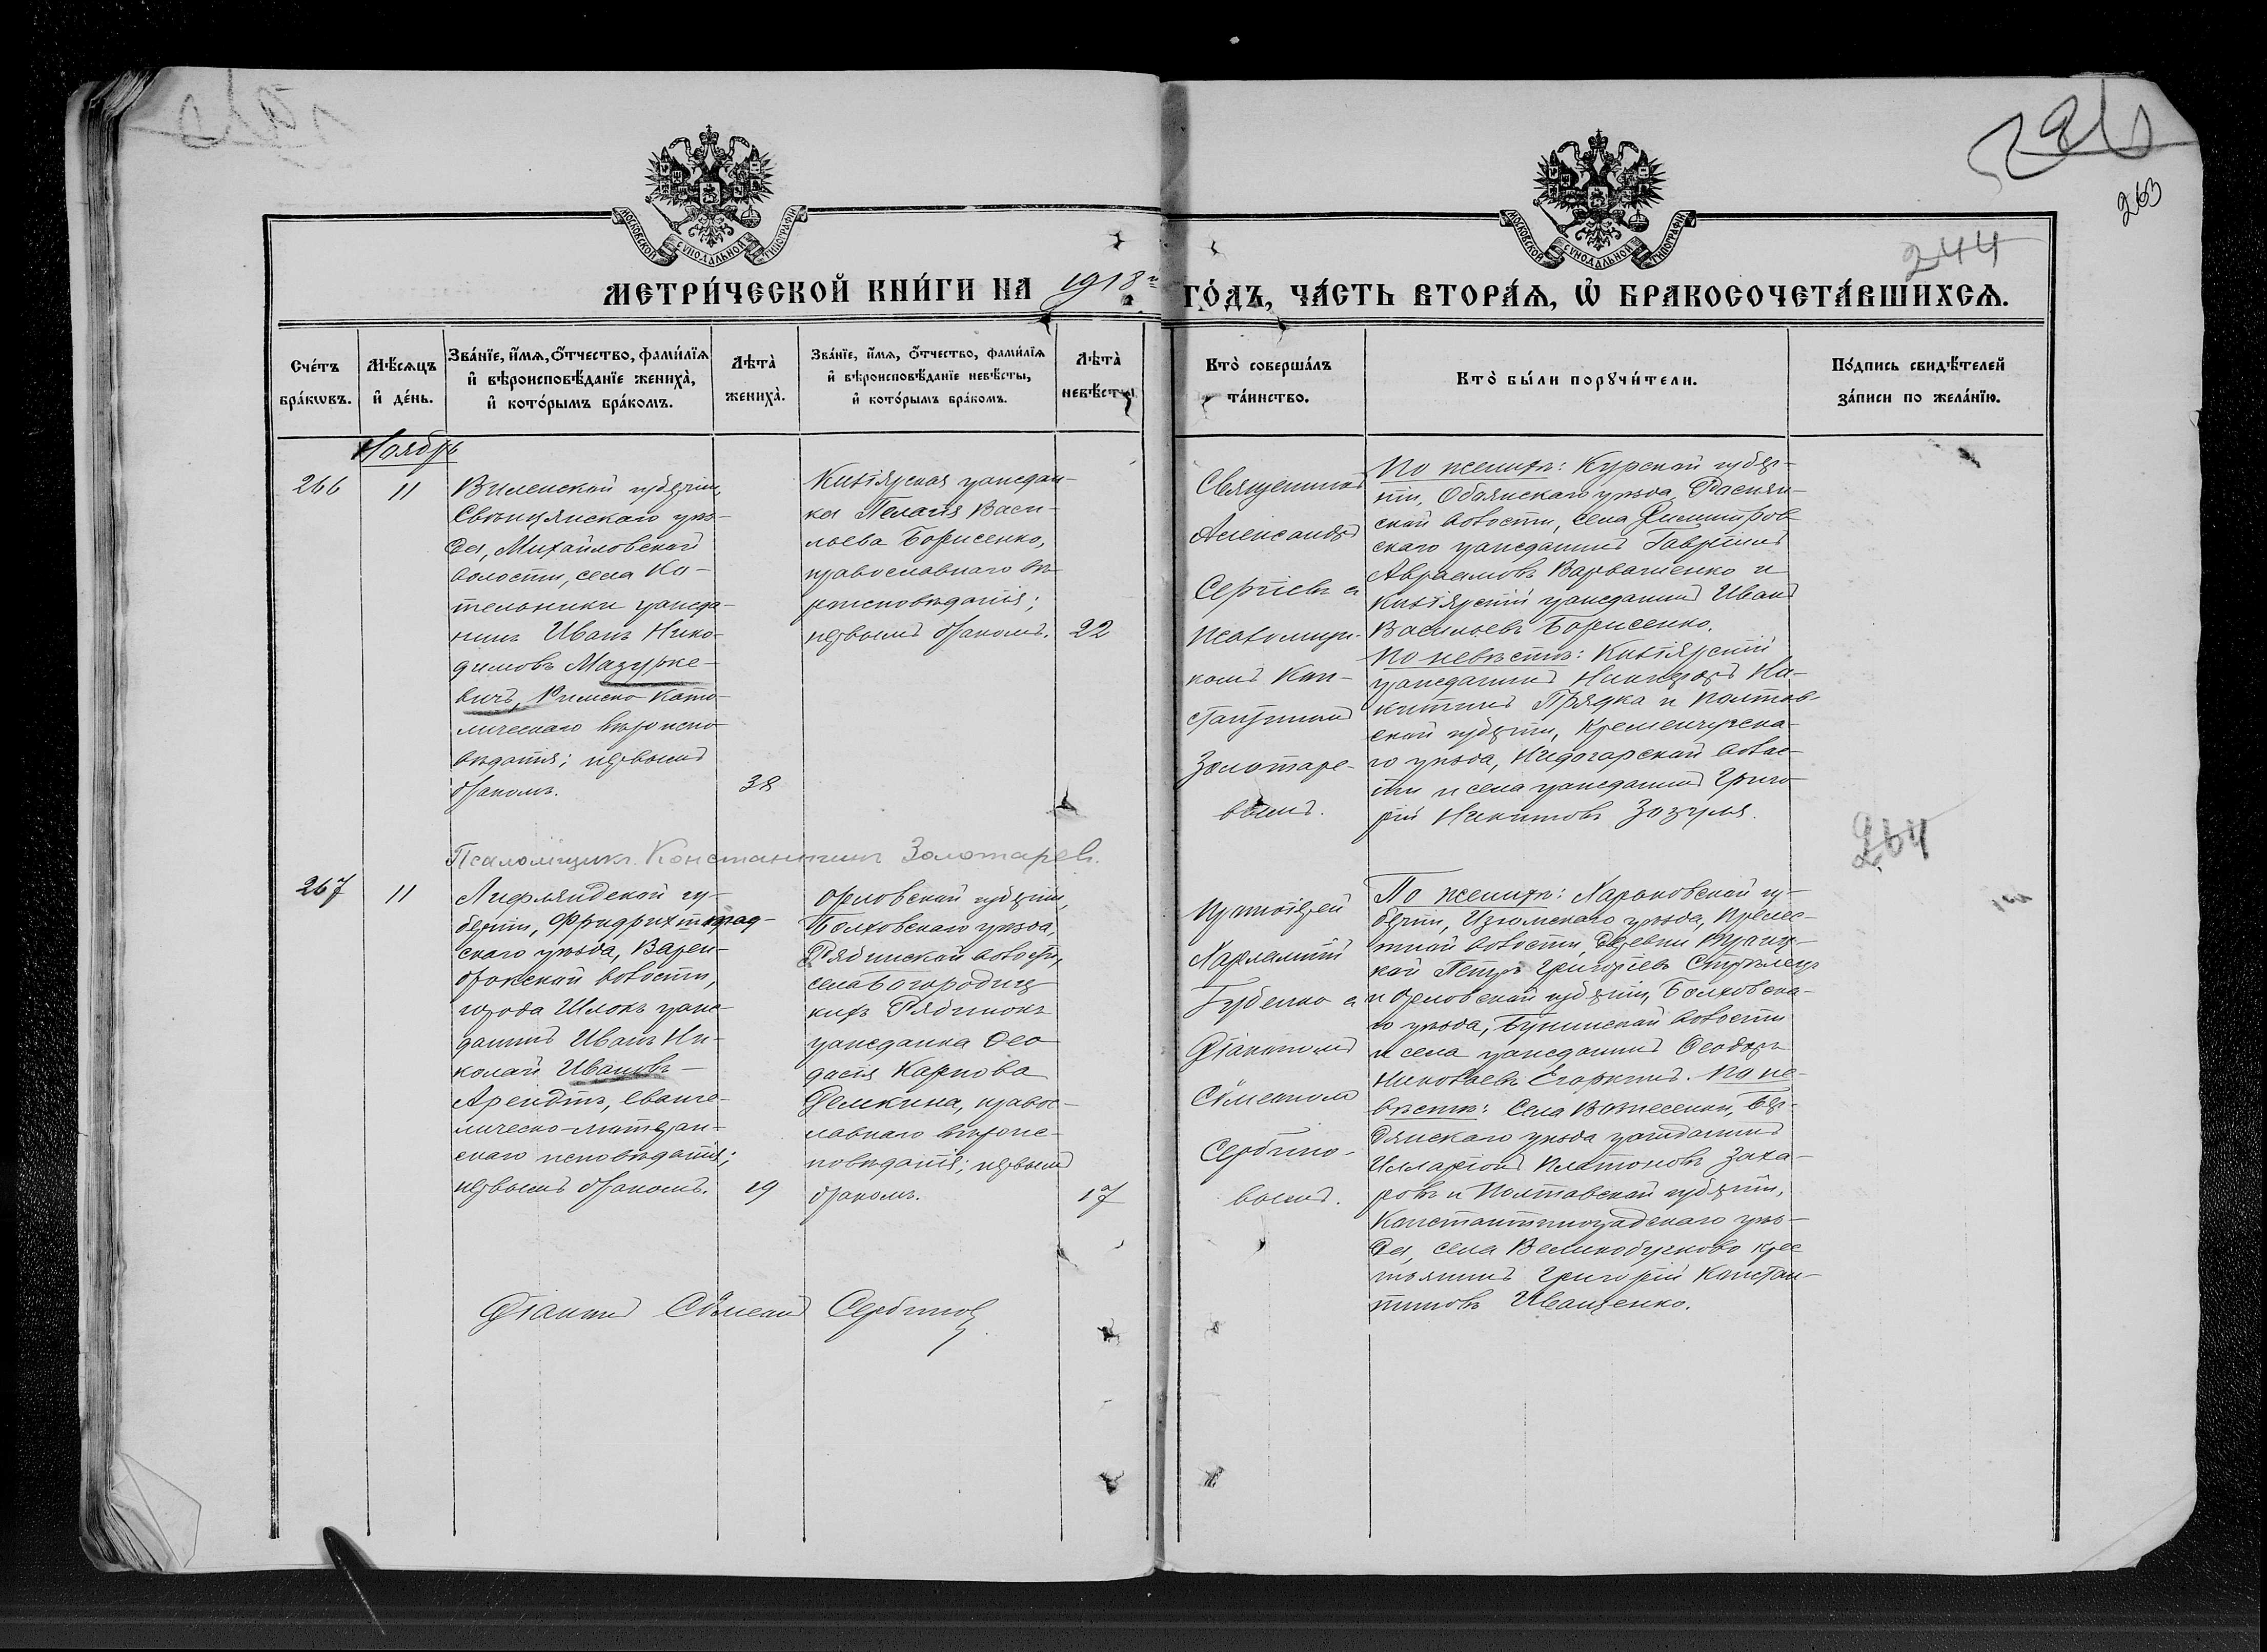 263
244
МОСКОВСКОЙ СѴНОДАЛЬНОЙ ТИПОГРАФІИ
МОСКОВСКОЙ СѴНОДАЛЬНОЙ ТИПОГРАФІИ
МЕТРИ́ЧЕСКОЙ КНИ́ГИ НА 1918 ГО́ДЪ, ЧА́СТЬ ВТОРА́Ѧ, Ѡ҆ БРАКОСОЧЕТА́ВШИХСѦ.
Сче́тъ бра́кωвъ.
Мѣ́сѧцъ и҆ де́нь.
Зва́нїе, и҆́мѧ, ѻ҆́тчество, фами́лїѧ и҆ вѣроисповѣ́данїе жениха̀, и҆ кото́рымъ бра́комъ.
Лѣта̀ жениха̀.
Зва́нїе, и҆́мѧ, ѻ҆́тчество, фами́лїѧ и҆ вѣроисповѣ́данїе невѣ́сты, и҆ кото́рымъ бра́комъ.
Лѣта̀ невѣ́сты.
Кто̀ соверша́лъ та́инство.
Кто̀ бы́ли порꙋчи́тели.
По́дпись свидѣ́телей за́писи по жела́нїю.
Ноябрь
266
11
Виленской губерніи,
Свѣнцянскаго уѣз-
да, Михайловской
волости, села Ко-
тельники гражда-
нинъ Иванъ Нико-
димовъ Мазурке-
вичъ, Римско-като-
лическаго вѣроиспо-
вѣданія; первымъ
бракомъ.
38
гражданка
Пелагія Васи-
льева Борисенко,
православнаго вѣ-
роисповѣданія;
первымъ бракомъ.
22
Священникъ
Александръ
Сергіевъ съ
псаломщи-
комъ Кон-
стантиномъ
Золотаре-
вымъ.
По женихѣ: Курской губер-
ніи, Обоянскаго уѣзда,
ской волости, села Димитров-
скаго гражданинъ Гавріилъ
Авраамовъ и
гражданинъ Иванъ
Васильевъ Борисенко.
По невѣстѣ:
гражданинъ Никифоръ Ни-
китинъ Прядка и Полтав-
ской губерніи, Кременчугска-
го уѣзда, волос-
ти и села гражданинъ Григо-
рій Никитовъ Зозуля.
Псаломщикъ Константинъ Золотаревъ.
264
267
11
Лифляндской гу-
берніи, Фридрихштад-
скаго уѣзда,
волости,
города Шлокъ граж-
данинъ Иванъ Ни-
колай Ивановъ
Арендтъ, еванге-
лическо-лютеран-
скаго исповѣданія;
первымъ бракомъ.
19
Орловской губерніи,
Болховскаго уѣзда,
Рябинской волости,
села Богородиц-
кихъ Рябинокъ
гражданка Ѳео-
досія Карпова
Демкина, правос-
лавнаго вѣроис-
повѣданія; первымъ
бракомъ.
17
Протоіерей
Харлампій
Губенко съ
Діакономъ
Сѵмеономъ
Сербино-
вымъ.
По женихѣ: Харьковской гу-
берніи, Изюмскаго уѣзда, Прелес-
тной волости, деревни
Петръ Григорьевъ Стрѣлецъ
и Орловской губерніи, Болховска-
го уѣзда, Бунинской волости
и села гражданинъ Ѳеодоръ
Николаевъ Егоркинъ. По не-
вѣстѣ: Села Вознесенки, Бер-
дянскаго уѣзда гражданинъ
Илларіонъ Платоновъ Заха-
ровъ и Полтавской губерніи,
Константиноградскаго уѣз-
да, села Великобучково крес-
тьянинъ Григорій Констан-
тиновъ Иващенко.
Діаконъ Сѵмеонъ Сербиновъ